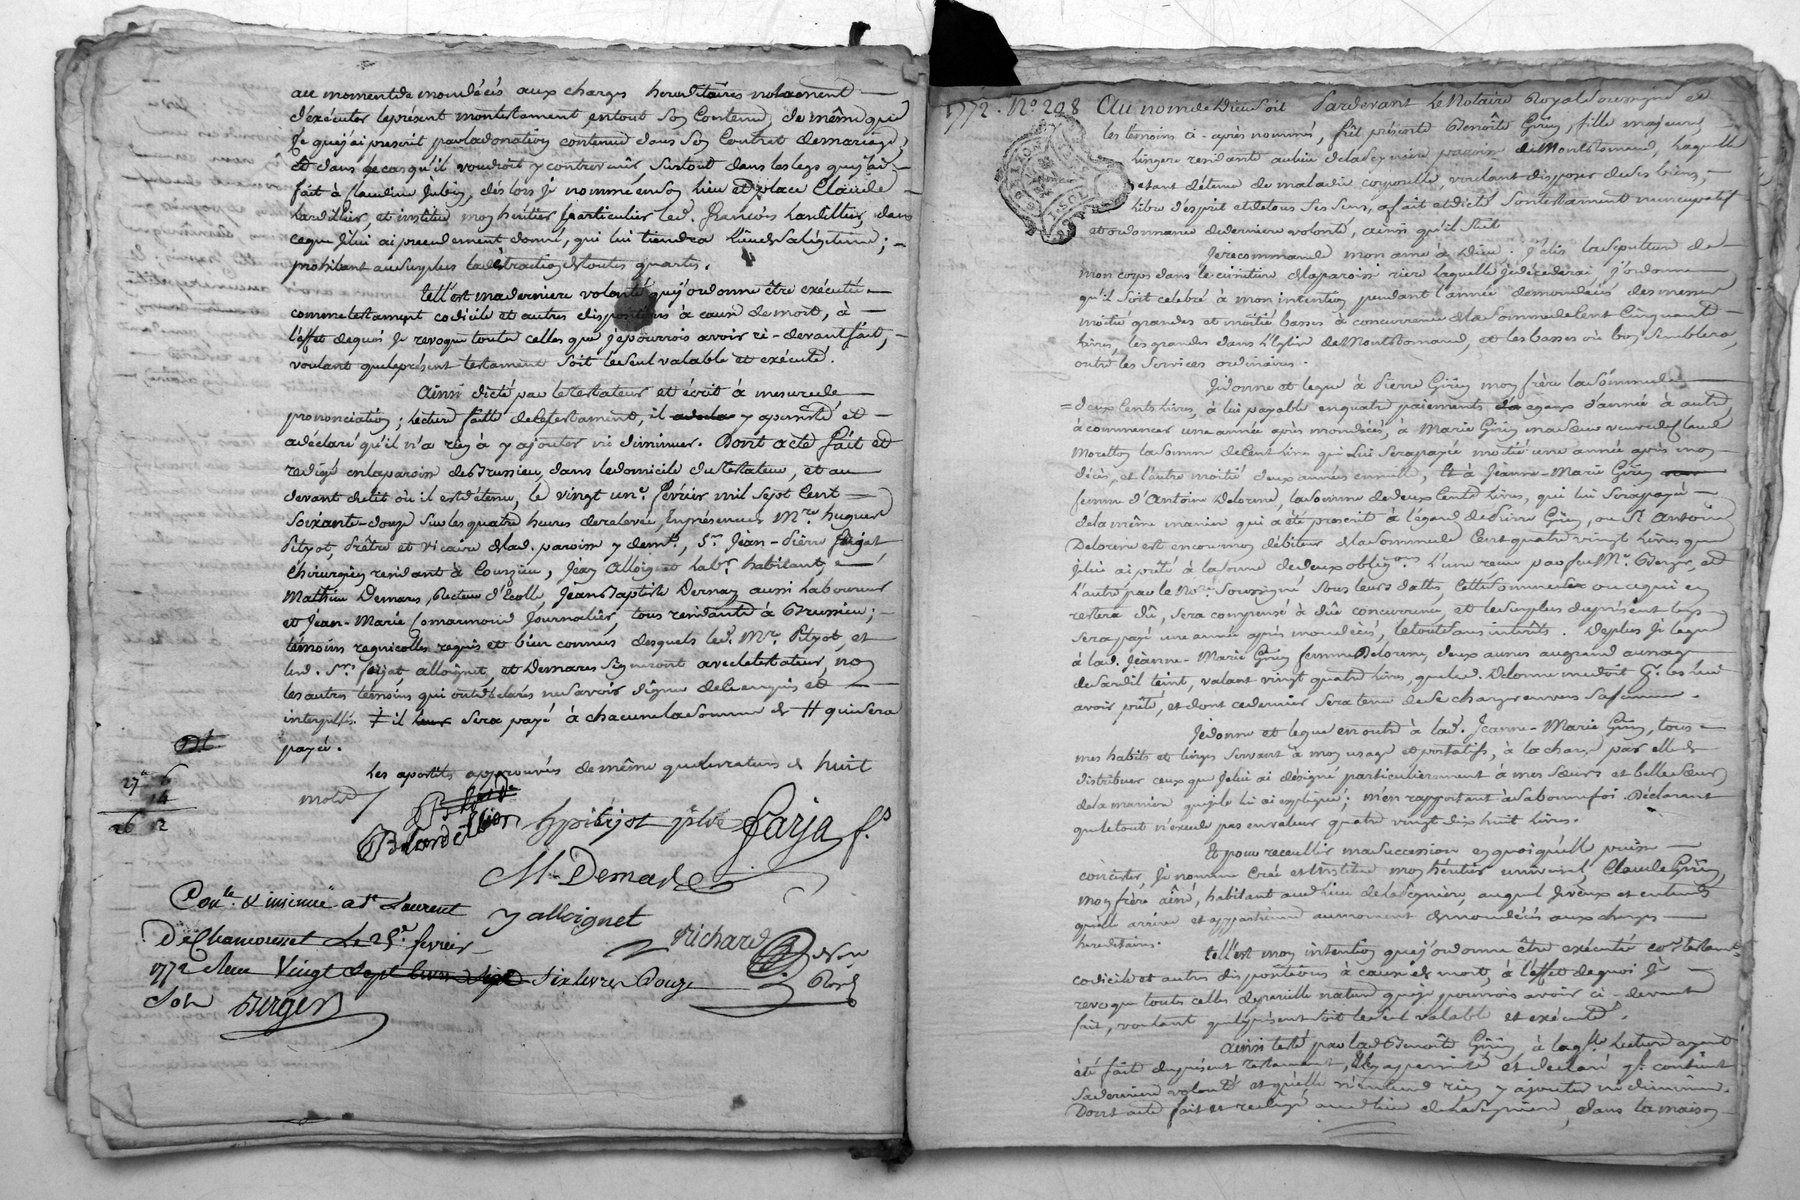 au moment de mon décès aux charges héréditaires notament
d'éxécuter le présent mon testament, en tout son contenu, de même que
ce que j'ai prescrit par la donation contenue dans son Contrat de mariage,
et dans le cas qu'il voudroit y contrevenir, surtout dans les legs que j'ai
fait à Claudine Jubin, dès lors je nomme en son lieu et place Claude
hardillier, et institue mon héritier particulier led. François hardillier, dans
ce que je lui ai précedement donné, qui lui tiendra lieu de sa légitime;
prohibant au surplus la détraction de toutes quartes.
tell'est ma derniere volonté que j'ordonne être exécutée
comme testament codicile et autres dispositions à cause de mort, à
l'effet de quoi je revoque toutes celles que je pourrois avoir ci-devant fait,
voulant que le présent testament soit le seul valable et exécuté.
Ainsi dicté par le testateur et écrit à mesure de
prononciation; lecture faitte de ce testament, il y a persisté et
a déclaré qu'il n'a rien à y ajouter ni diminuer. Dont acte fait et
redigé en la paroisse de Brussieu, dans le domicile du testateur, et au
devant du lit où il est détenu, le vingt un.e février mil sept cent
soixante-douze sur les quatre heures de relevée, en présences M.re hugues
Pityot, Prêtre et Vicaire de lad. paroisse y dem.t, S.r Jean-Pierre
Chirurgien residant à Courzieu, Jean Alloignet lab.r habitant,
Mathieu Demares, Recteur d'Ecolle, Jean Baptiste Dernay aussi Laboureur
et Jean-Marie Journalier, tous residants à Brussieu;
témoins regnicolles requis et bien connus desquels led. M.re Pityot, et
led. S.rs alloignet, et Demares signeront avec le testateur, non
les autres témoins qui ont déclarés ne savoir signer de ce enquis et
interpellés. il sera payé à chacune la somme de qui sera
payé.
Les apostils approuvés de même que les ratures de huit
mots
27 6
14
26 12
hpitiyot ptre
M. Demares
J alloignet
Richard
Con.lé & insinué a S.t Laurent
De Chamousset Le 25.e fevrier
1772 Recu Six livres Douze
sols Berger
1772. N.o 208 Au nom de Dieu soit Pardevant Le Notaire Royal soussigné et
les témoins ci-après nommés, fût présente Benoîte Girin, fille majeure
lingere residante au lieu de paroisse de Montromand, laquelle
étant détenue de maladie corporelle, voulant disposer de ses biens,
libre d'esprit et de tous ses sens, a fait et dicté son testament nuncupatif
et ordonnance de derniere volonté, ainsi qu'il suit
Je recommande mon ame à Dieu, j'élis la sépulture de
mon corps dans le cimitiere de la paroisse riere laquelle je décederai, j'ordonne
qu'il soit celebré à mon intention pendant l'année de mon décès des messes
moitié grandes et moitié basses à concurrence de la somme de cent cinquante
livres, les grandes dans l'Eglise de Montromand, et les basses où bon semblera,
outre les services ordinaires.
Je donne et legue à Pierre Girin mon frère la somme de
deux cents livres, à lui payable en quatre paiements égaux d'année à autre
à commencer une année après mon décès, à Marie Girin ma sœur veuve de Claude
Moretton la somme de cent livres qui lui sera payée moitié une année après mon
décès, et l'autre moitié deux années ensuite, Et à Jeanne-Marie Girin
femme d'Antoine Delorme, la somme de deux cents livres, qui lui sera payée
de la même maniere qui a été prescrit à l'égard de Pierre Girin, ou si Antoine
Delorme est encore mon débiteur de la somme de Cent quatre vingt livres que
je lui ai prêté à la forme de deux oblig.ons l'une reçue par feu M.e Berger, et
l'autre par le No.re soussigné sous leurs dattes, cette somme ou ce qui en
restera dû, sera compensé à dûe concurrence, et le surplus du présent legs
sera payé une année après mon décès, le tout sans intérêts. De plus je legue
à lad. Jeanne-Marie Girin femme Delorme, deux aunes au grand aunage
de sardil teint, valant vingt quatre livres, que led. Delorme me doit p.r les lui
avoir prêté, et dont ce dernier sera tenu de se charger envers sa femme.
Je donne et legue en outre à lad. Jeanne-Marie Girin, tous
mes habits et linges servant à mon usage et portatifs, à la charge par elle de
distribuer ceux que je lui ai désigné particulierement à mes sœurs et belle sœur,
de la maniere que je le lui ai expliqué; m'en rapportant à sa bonne foi. Déclarant
que le tout n'excede pas en valeur quatre vingt dix huit livres.
Et pour recueillir ma succession en quoi qu'elle puisse
consister, je nomme créé et institue mon héritier universel, Claude Girin,
mon frère aîné, habitant aud. lieu de auquel je veux et entends
qu'elle arrive et appartienne au moment de mon décès aux charges
hereditaires.
tell'est mon intention que j'ordonne être exécutée co.e testam.t
codicile et autres dispositions à cause de mort, à l'effet de quoi je
revoque toutes celles de pareille nature que je pourrois avoir ci-devant
fait, voulant que le présent soit le seul valable et exécuté.
Ainsi testé par lad. Benoîte Girin à laq.lle lecture ayant
été faite du présent testament, elle y a persisté et déclaré q.l contient
sa derniere volonté et qu'elle n'entend rien y ajouter ni diminuer.
Dont acte fait et redigé aud. lieu de dans la maison